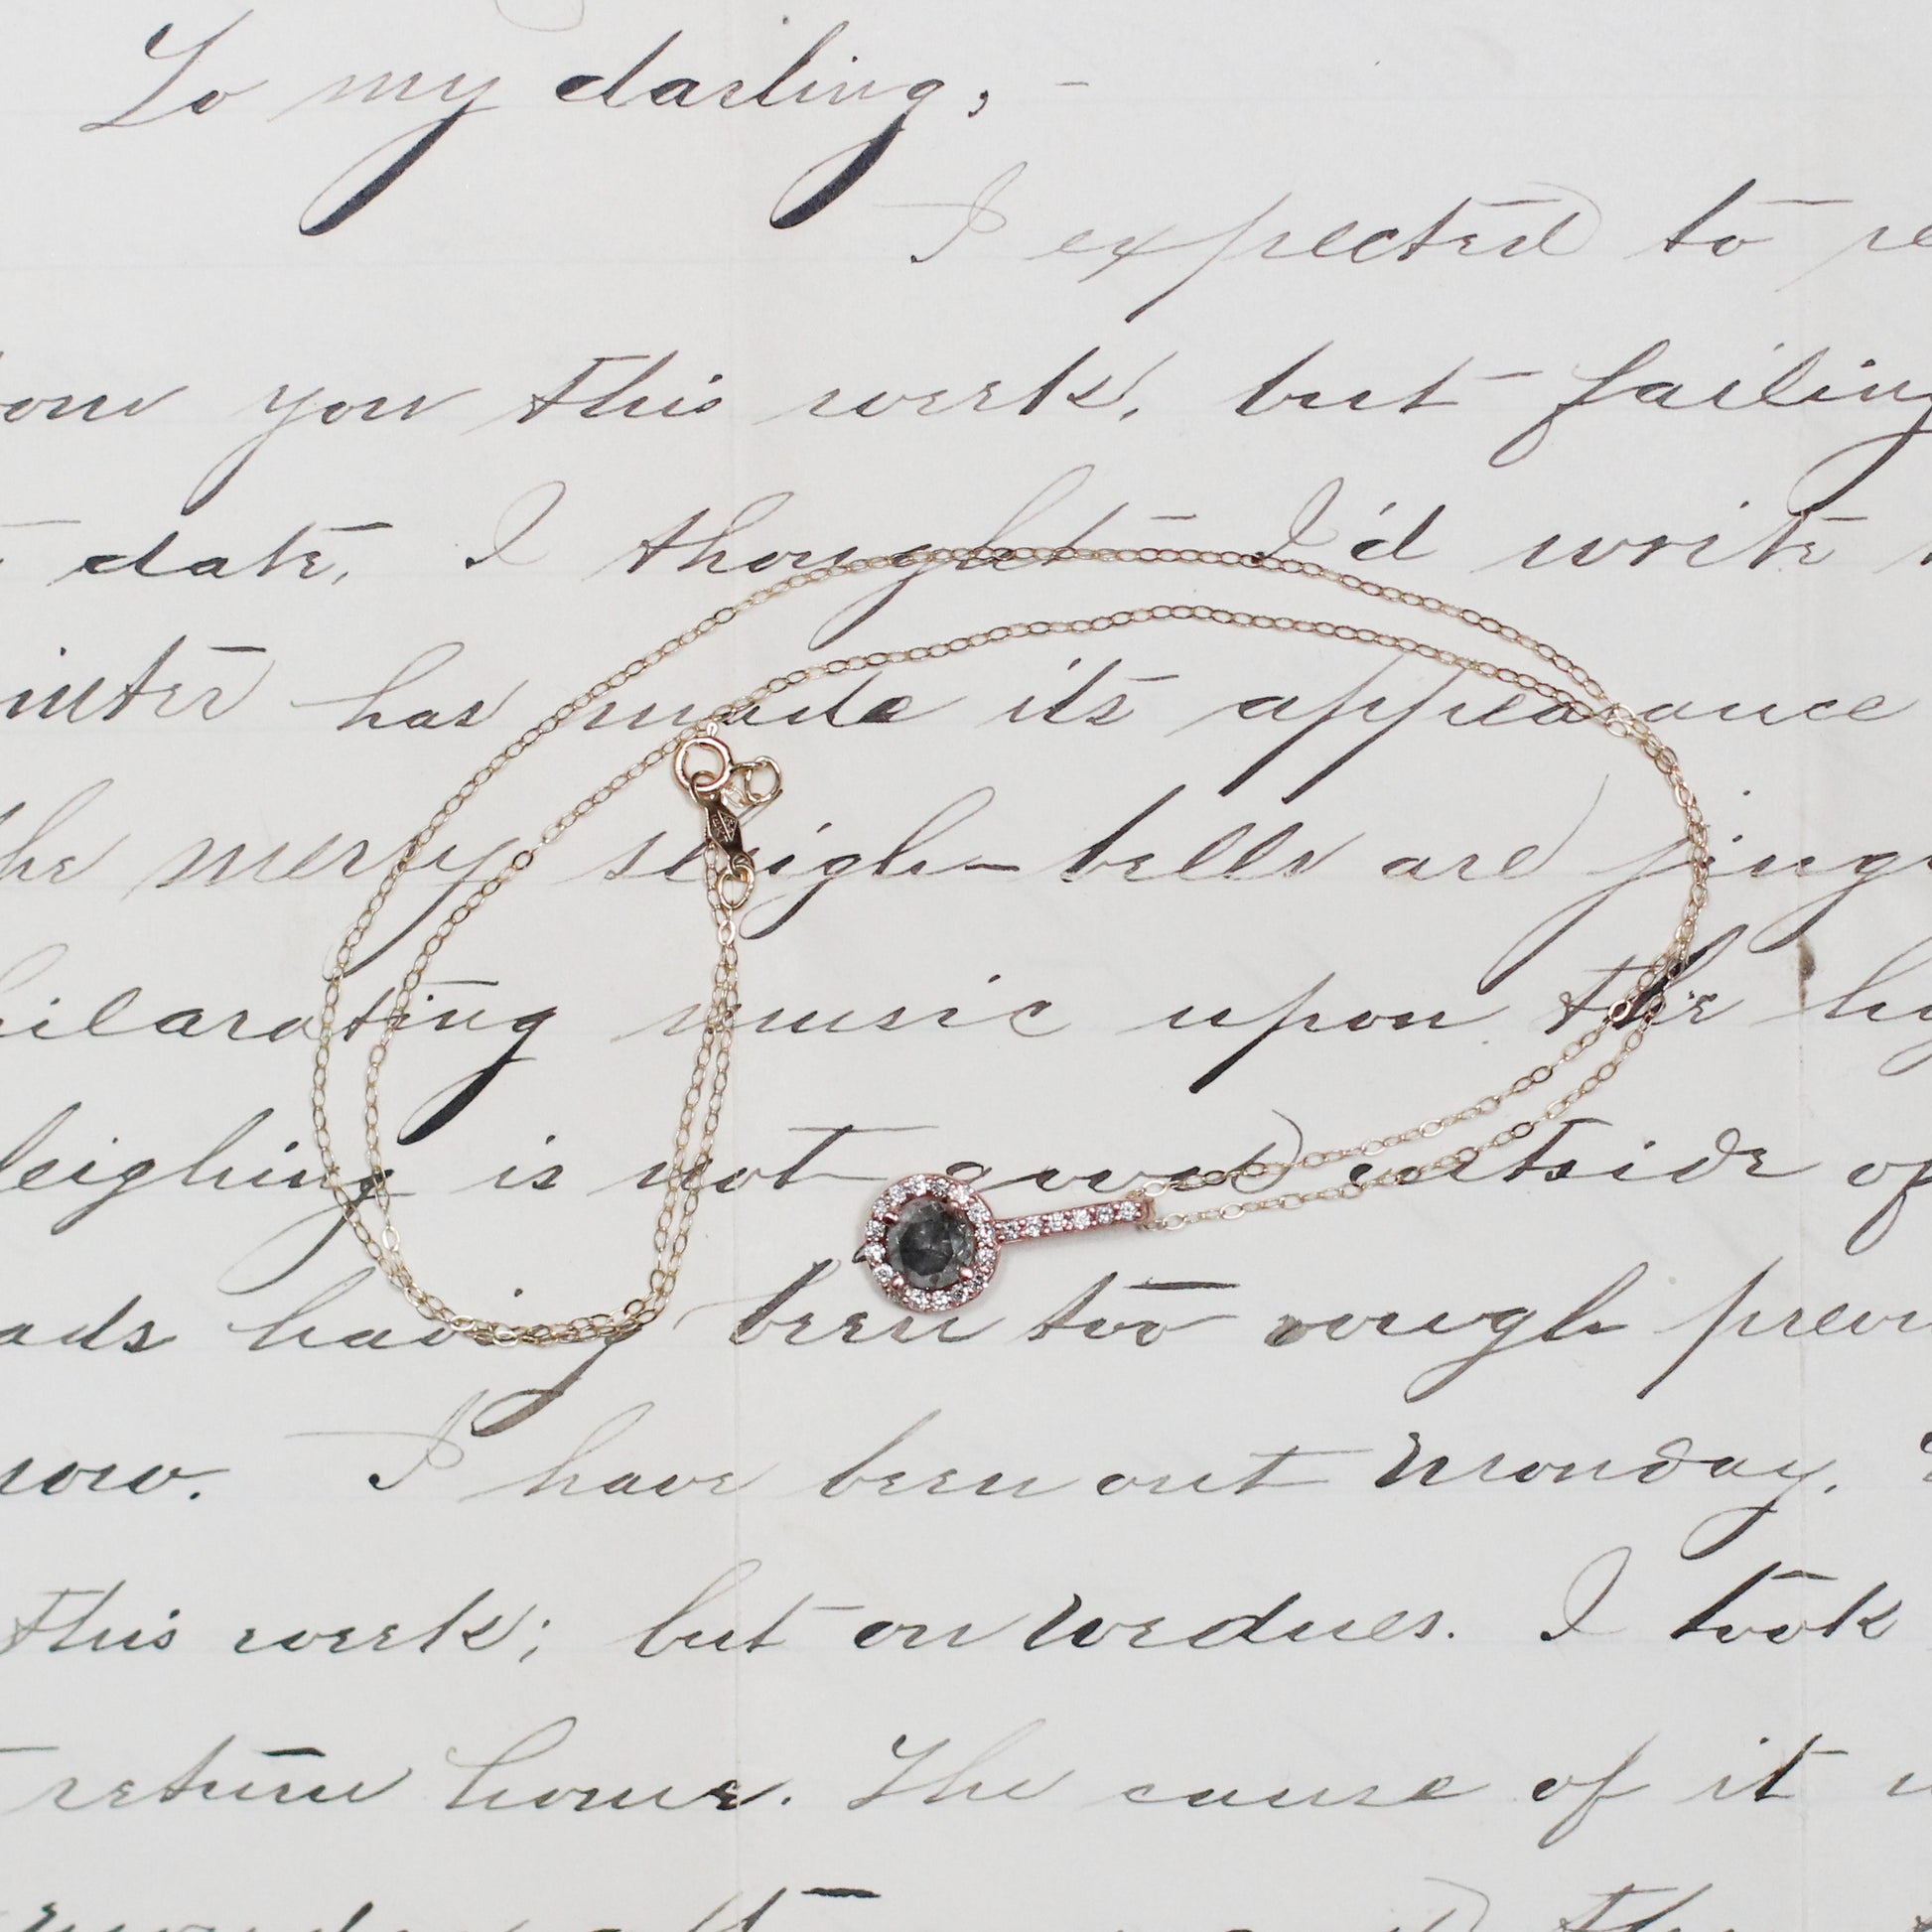 To my darling, -
I expected to re
om you this week, but failing
date, I thought I'd write
inter has made its appearance
he merry sleigh-bells are jing
hilarating music upon the hi
leighing is not good outside of
ads having been too rough previ
now. I have been out Monday.
this week; but on Wednes. I took
return home. The cause of it